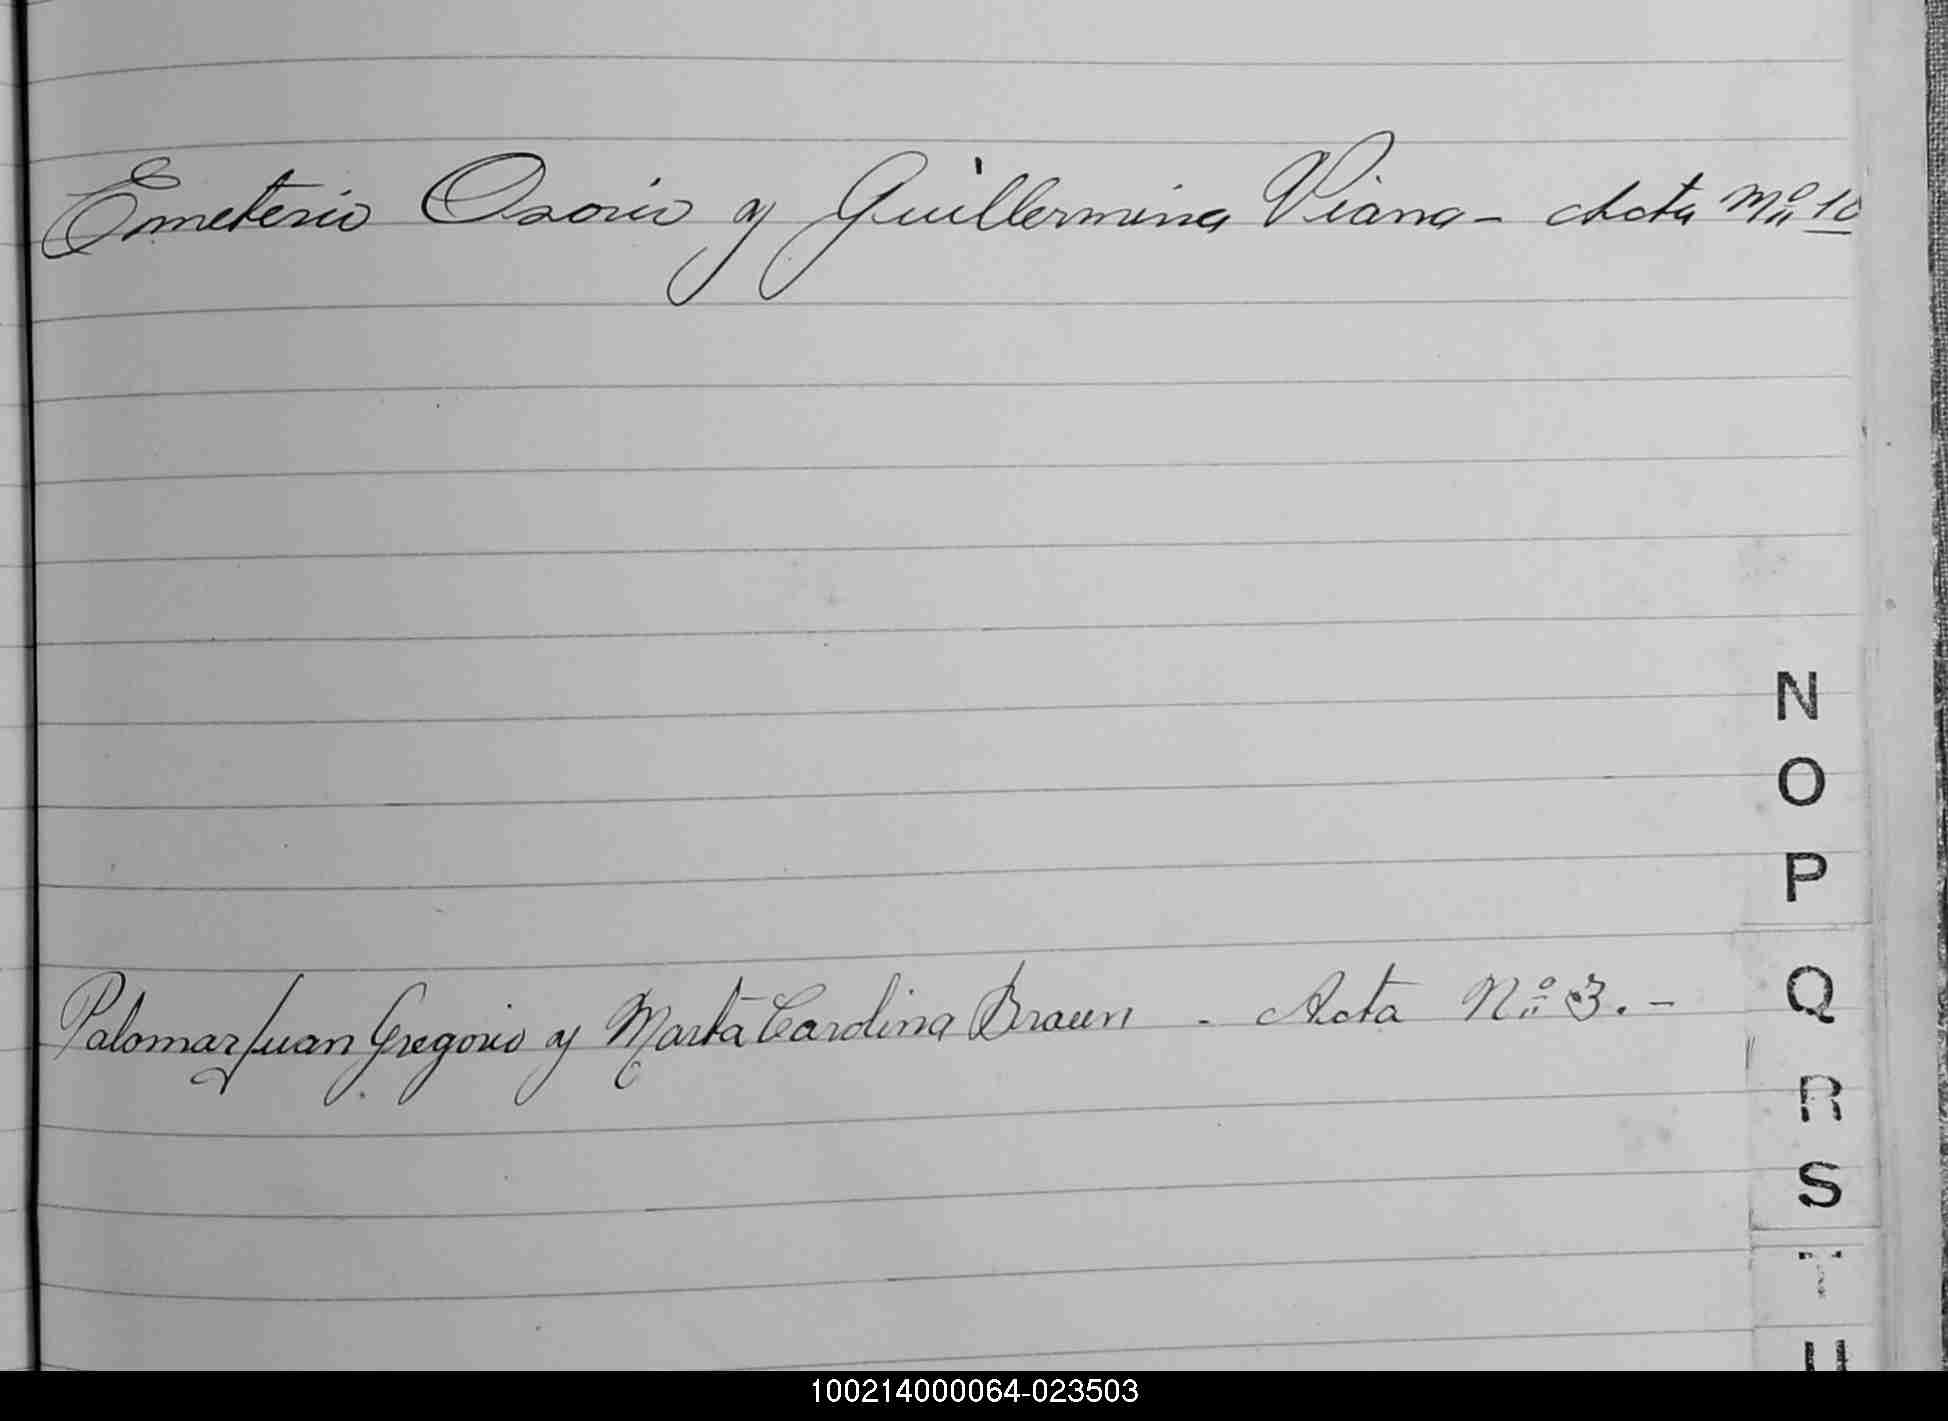 Emeterio Osorio y Guillermina Viana - Acta Nº 10
N
O
P
Palomar Juan Gregorio y Marta Carolina Braun - Acta Nº 3. -
Q
R
S
T
U
100214000064-023503